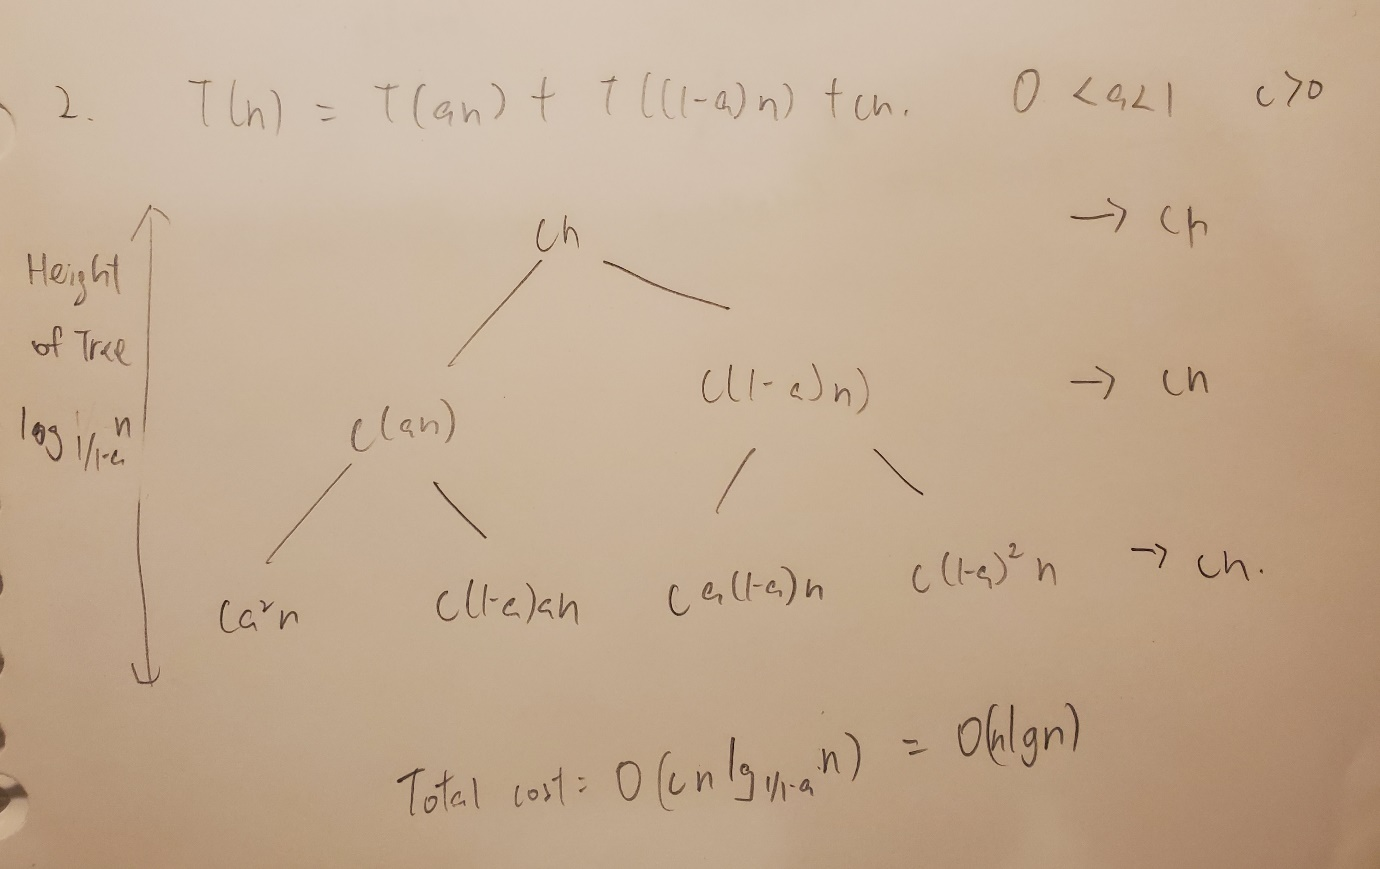 2. T(n) = T(an) + T((1-a)n) + cn. 0 < a < 1 c>0
cn → cn
Height
of Tree
log 1/1-a n
c(an) c((1-a)n) → cn
ca²n c(1-a)an ca(1-a)n c(1-a)² n → cn.
Total cost: O(cn lg 1/1-a n) = O(nlgn)